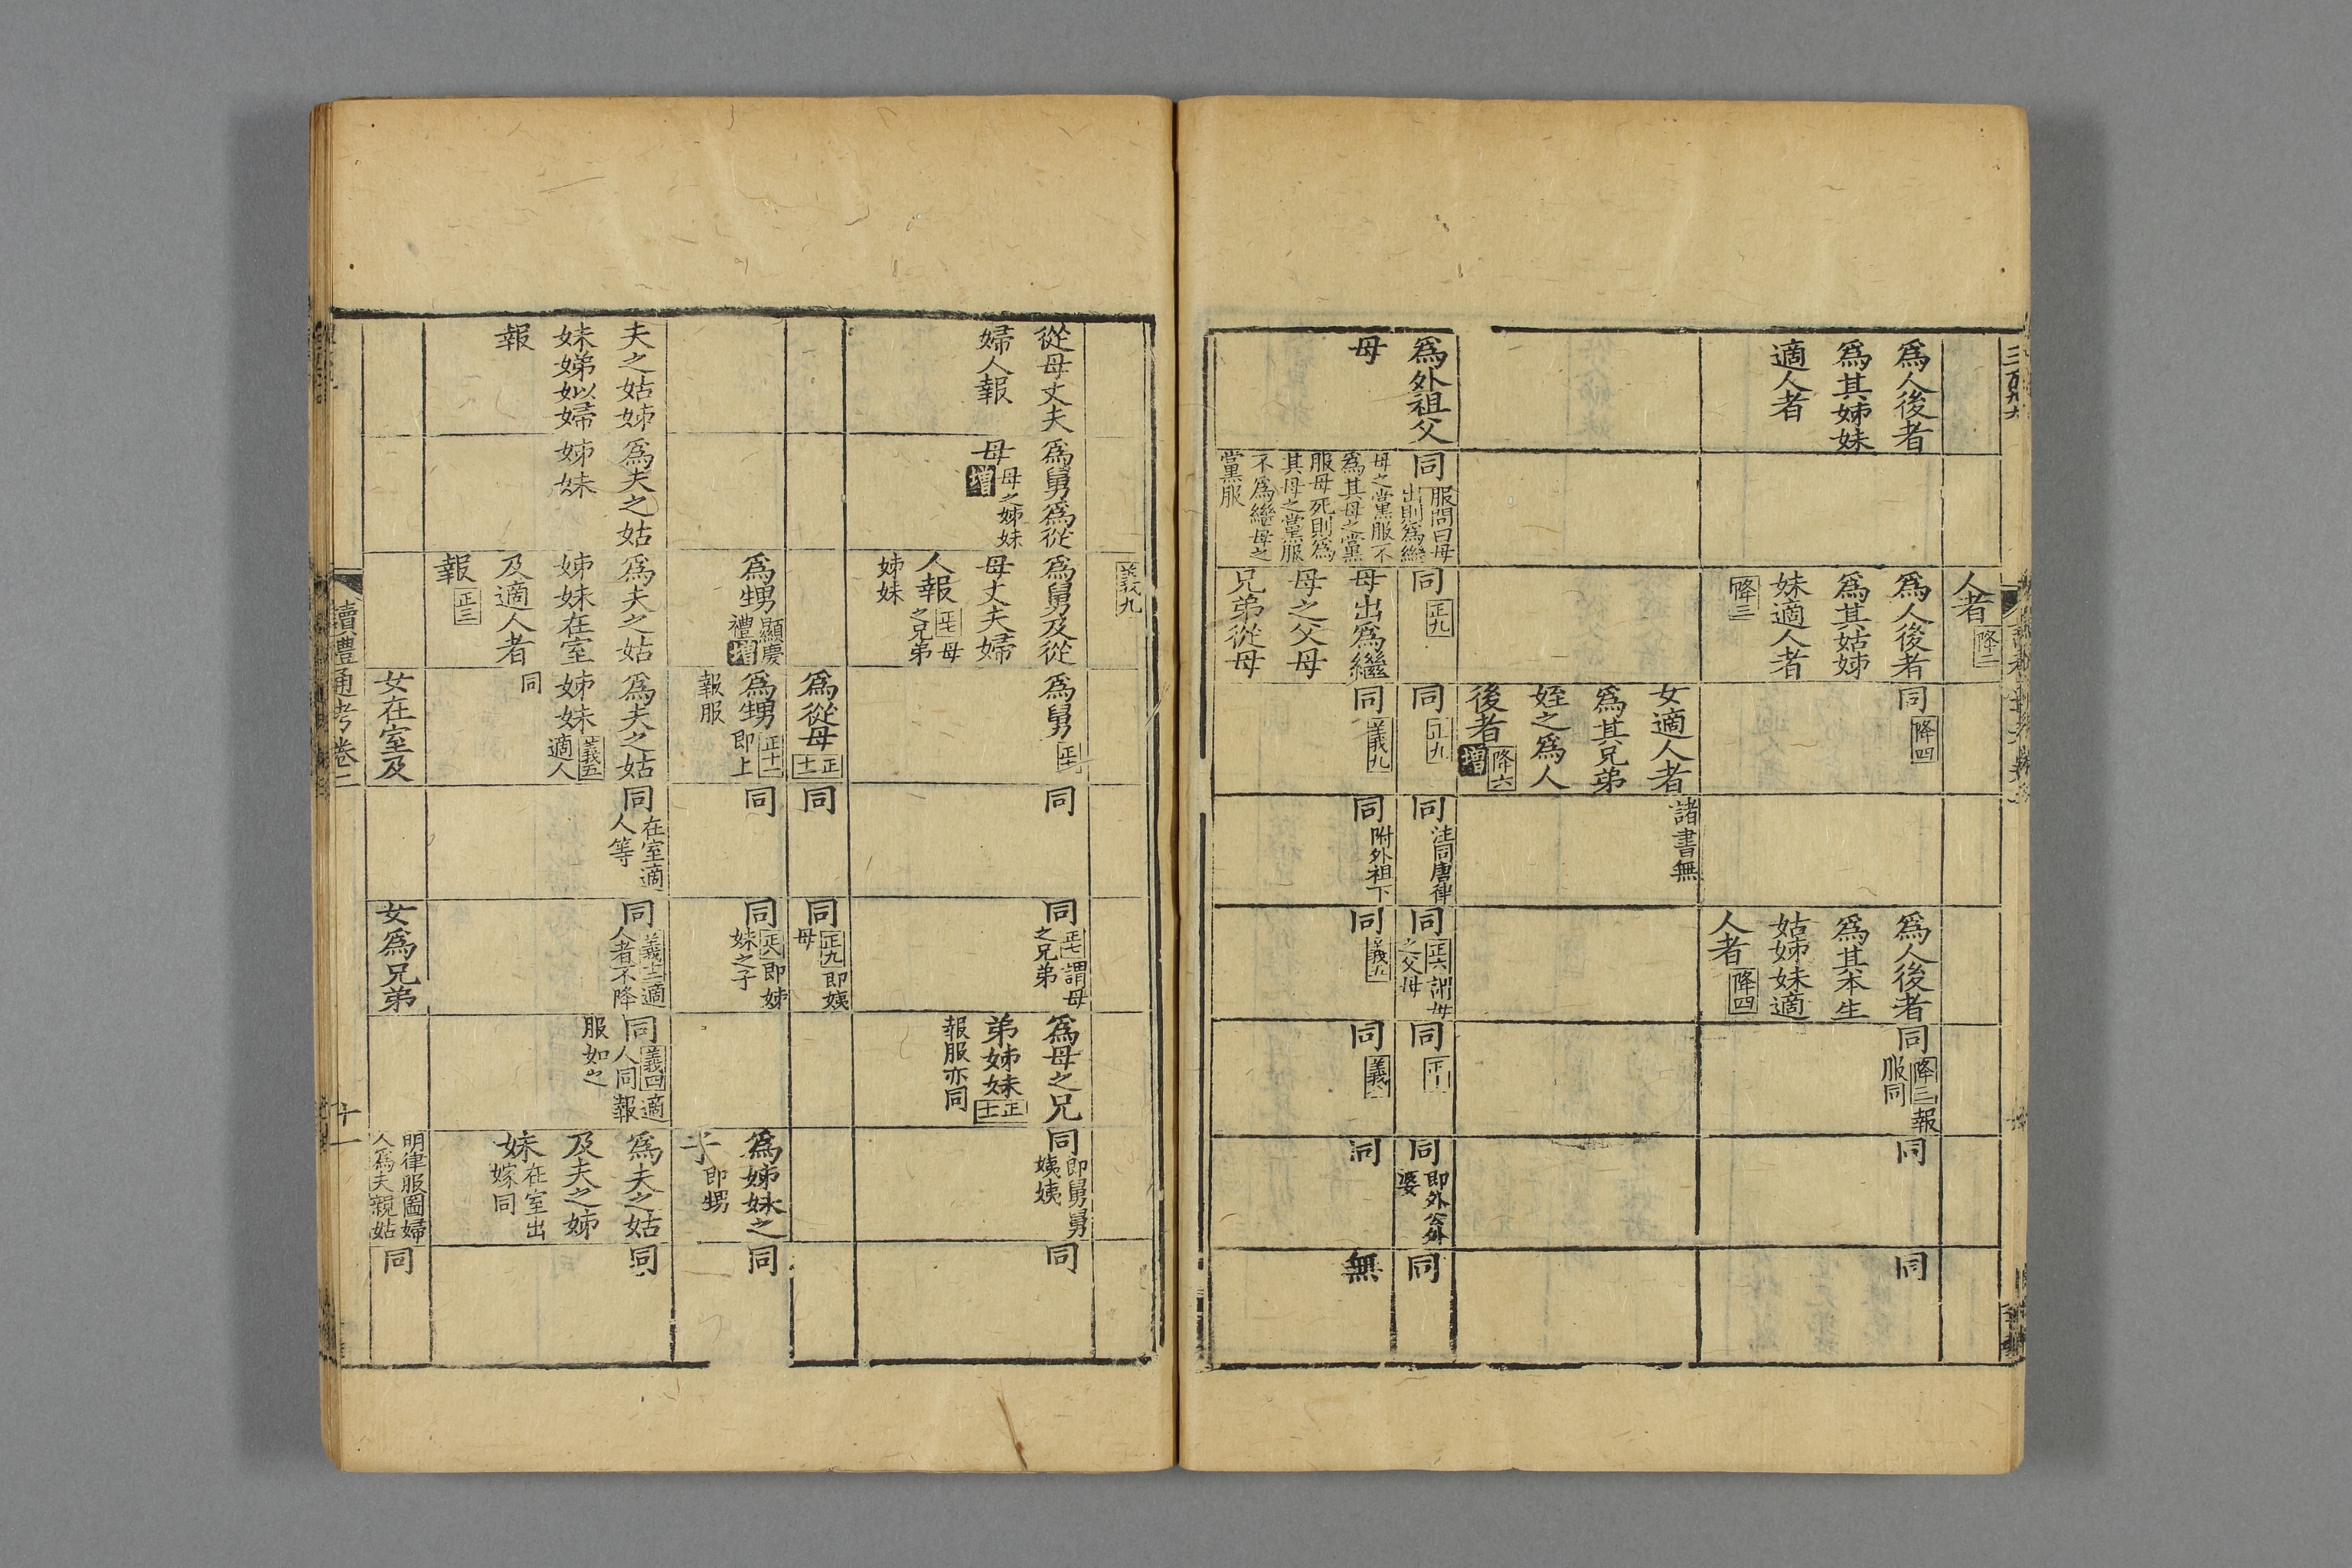 人者 降二
為人後者
為其姊妹
適人者
為人後者
為其姑姊
妹適人者
降三
同 降四
為人後者
為其本生
姑姊妹適
人者 降四
同 降三 報
服同
同
同
女適人者
為其兄弟
姪之為人
後者 降六 增
諸書無
為外祖父
母
同 服問曰母
出則為繼
母之黨服不
為其母之黨
服母死則為
其母之黨服
不為繼母之
黨服
同 正九
同 正九
同 註同唐律
同 正六 謂母
之父母
同
同 即外公外
婆
同
母出為繼
母之父母
兄弟從母
同 義九
同 附外祖下
同 義五
同 義
同
無
義九
從母丈夫
婦人報
為舅為從
母 母之姊妹
增
為舅及從
母丈夫婦
人報 正七 母
之兄弟
姊妹
為舅
同
同 正七 謂母
之兄弟
為母之兄
弟姊妹 正十
報服亦同
同 即舅舅
姨姨
同
為從母 正十
同
同 正九 即姨
母
為甥 顯慶
禮 增
為甥 正十二
即上
報服
同
同 正八 即姊
妹之子
為姊妹之
子 即甥
同
夫之姑姊
妹娣姒婦
報
為夫之姑
姊妹
為夫之姑
姊妹在室
及適人者
報 正三
為夫之姑
姊妹 義五
適人
同
同 在室適
人等
同 義三 適
人者不降
同 義四 適
人同報
服如之
為夫之姑
及夫之姊
妹 在室出
嫁同
同
女在室及
女為兄弟
明律服圖婦
人為夫親姑
同
讀禮通考卷二
十一